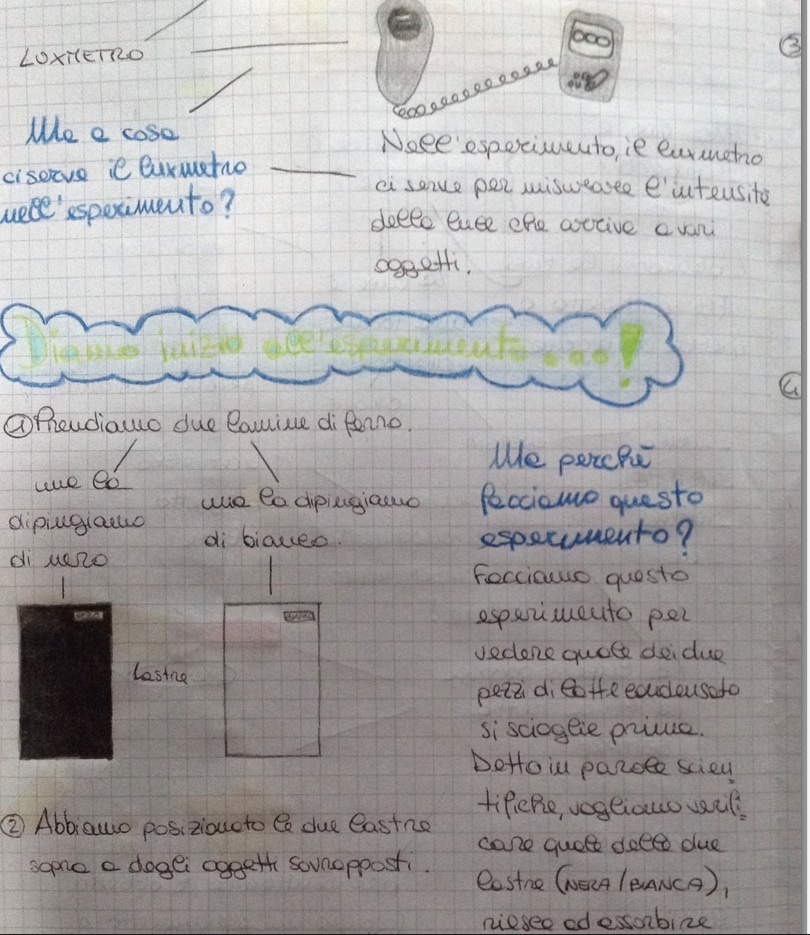 LUXMETRO
③
Ma a cosa
ci serve il luxmetro
nell'esperimento?
Nell'esperimento, il luxmetro
ci serve per misurare l'intensità
della luce che arriva a vari
oggetti.
Diamo inizio all'esperimento...!
④
① Prendiamo due lamine di ferro.
una la
dipingiamo
di nero
una la dipingiamo
di bianco.
lastre
② Abbiamo posizionato le due lastre
sopra a degli oggetti sovrapposti.
Ma perché
facciamo questo
esperimento?
Facciamo questo
esperimento per
vedere quale dei due
pezzi di latte condensato
si scioglie prima.
Detto in parole scien
tifiche, vogliamo verifi=
care quale delle due
lastre (NERA/BIANCA),
riesce ad assorbire